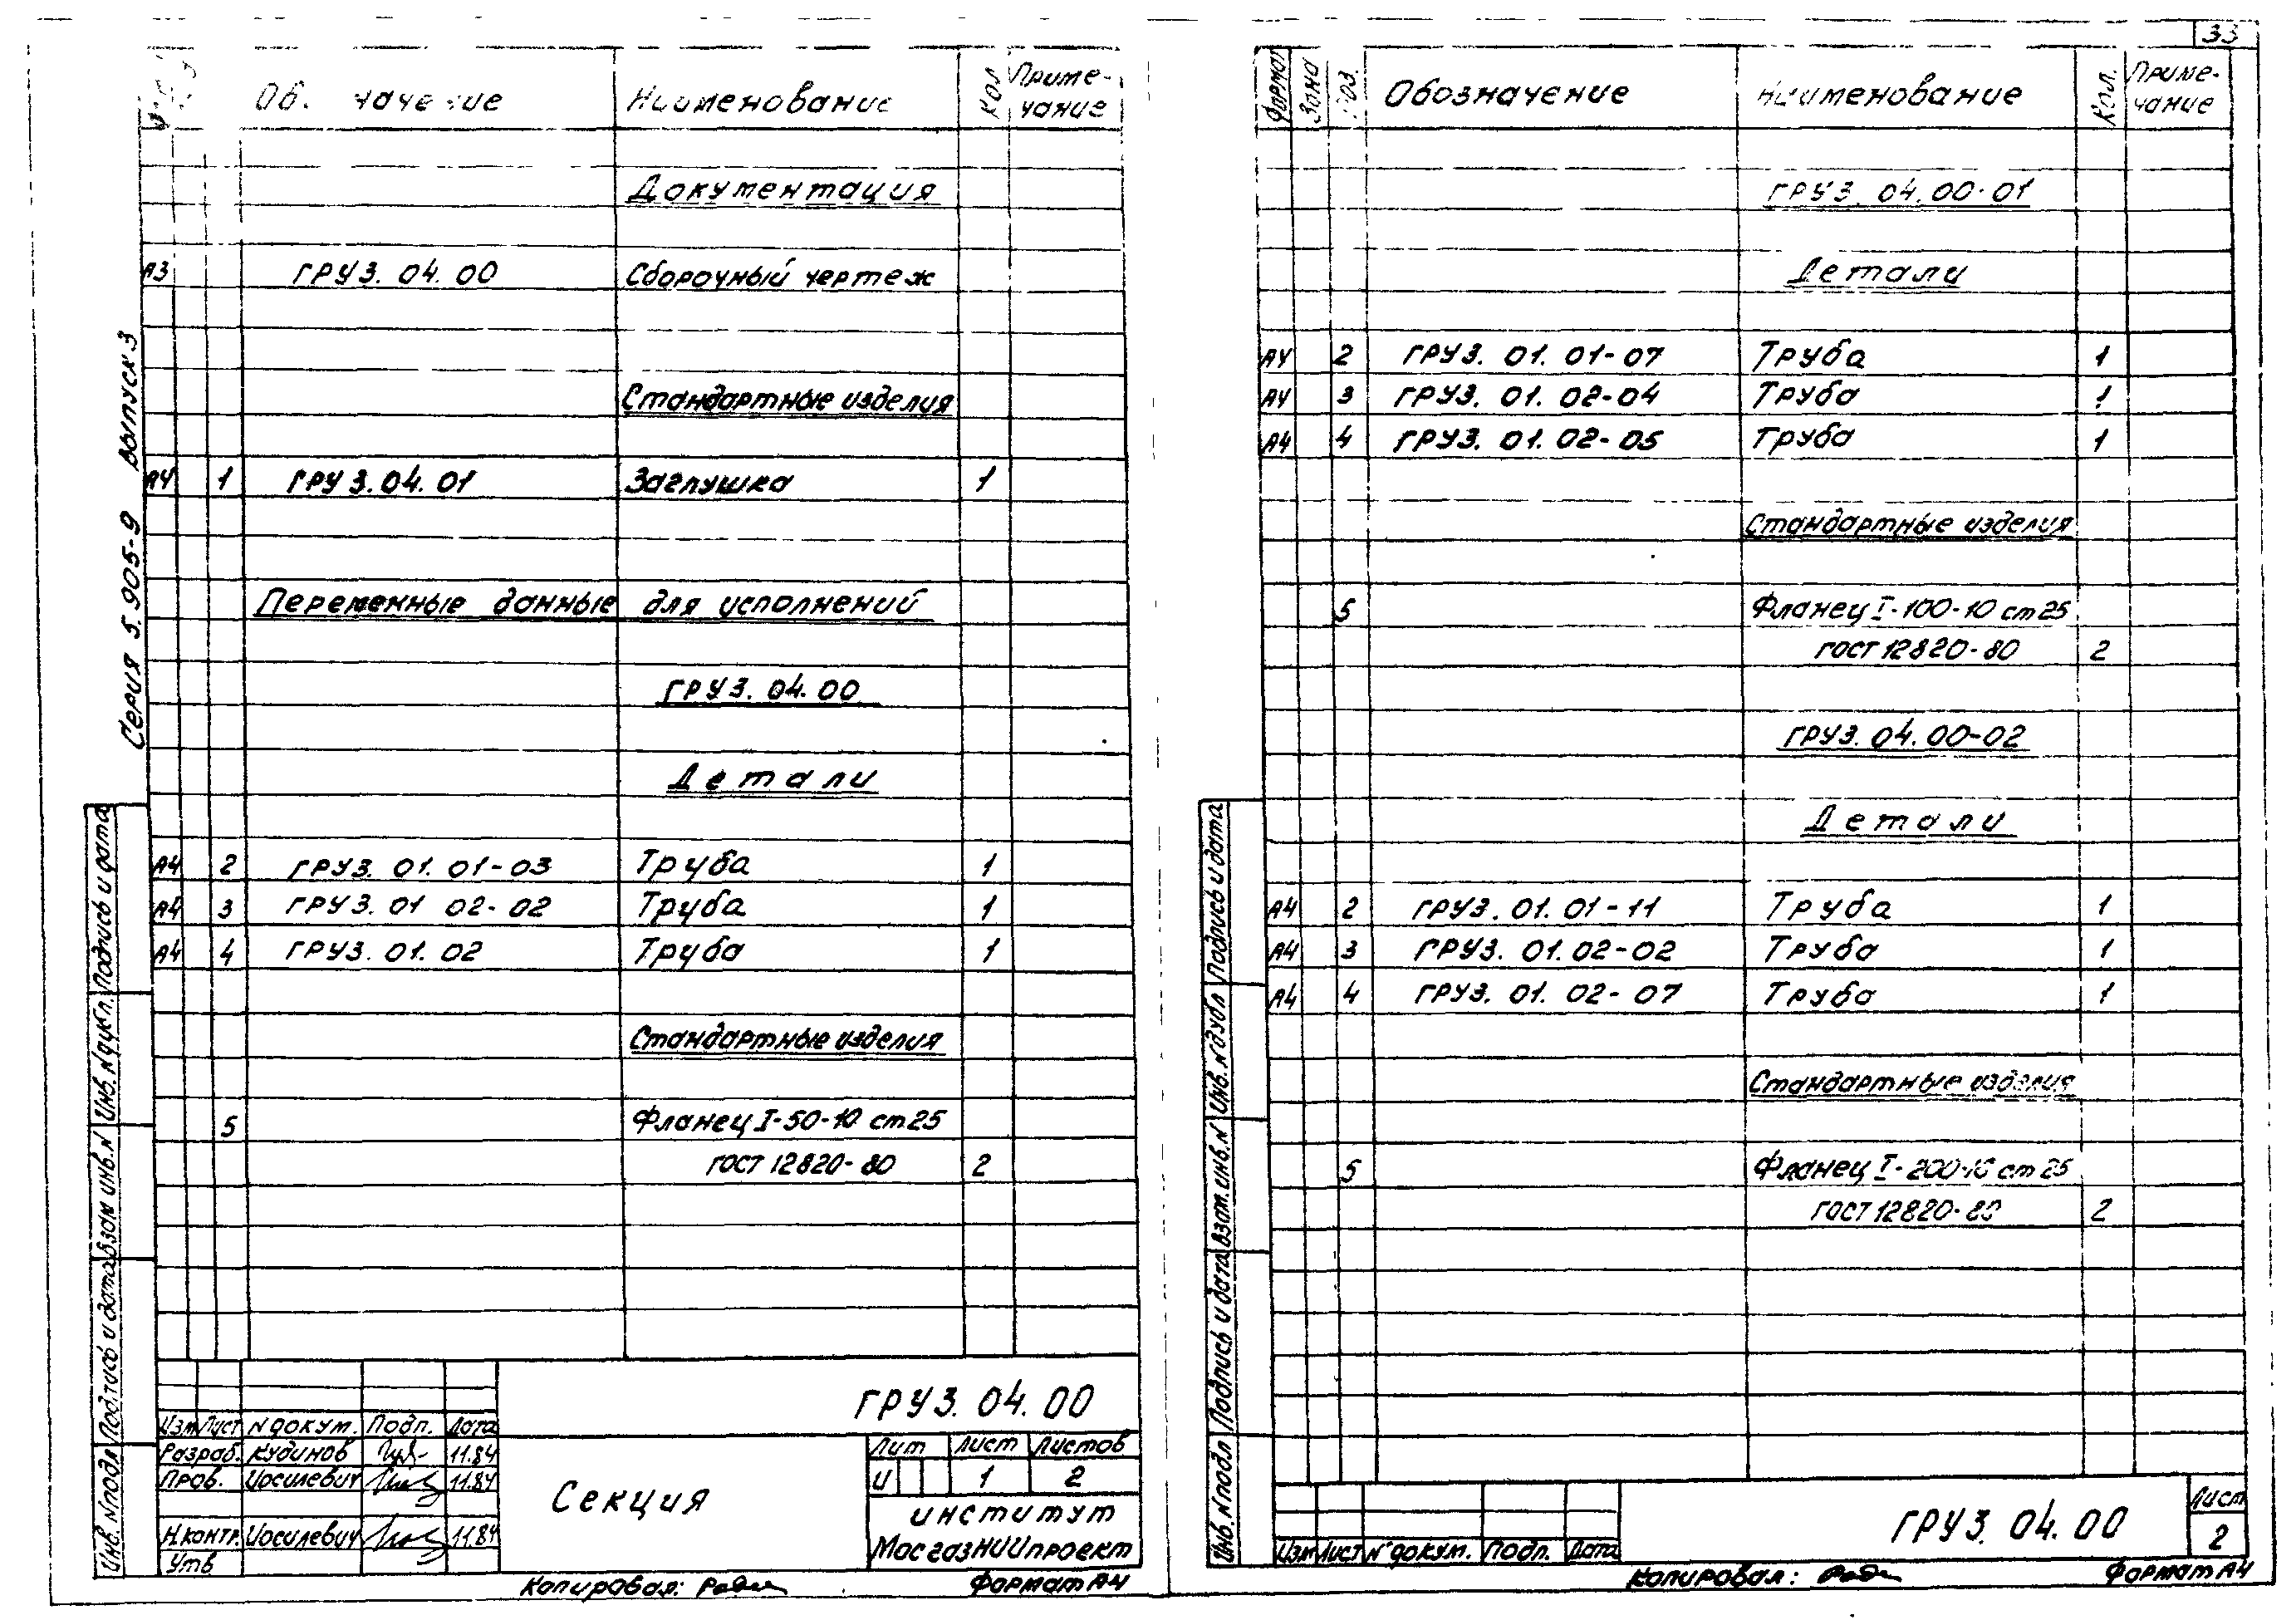 33
Серия 5.905-9 выпуск 3
Обозначение Наименование Кол Примечание
Документация
А3 ГРУ 3. 04. 00 Сборочный чертеж
Стандартные изделия
А4 1 ГРУ 3. 04. 01 Заглушка 1
Переменные данные для исполнений
ГРУ 3. 04. 00
Детали
А4 2 ГРУ 3. 01. 01-03 Труба 1
А4 3 ГРУ 3. 01 02-02 Труба 1
А4 4 ГРУ 3. 01. 02 Труба 1
Стандартные изделия
5 Фланец I-50-10 ст 25
ГОСТ 12820-80 2
Инв. N подл Подпись и дата Взам инв. N Инв. N дубл. Подпись и дата
Изм Лист N докум. Подп. Дата
Разраб. Кудинов 11.84
Пров. Иосилевич 11.84
Н.контр. Иосилевич 11.84
Утв
ГРУ 3. 04. 00
Секция
Лит Лист Листов
И 1 2
институт
МосгазНИИпроект
Копировал: Формат А4
Формат Зона Поз. Обозначение Наименование Кол. Примечание
ГРУ 3. 04. 00-01
Детали
А4 2 ГРУ 3. 01. 01-07 Труба 1
А4 3 ГРУ 3. 01. 02-04 Труба 1
А4 4 ГРУ 3. 01. 02-05 Труба 1
Стандартные изделия
5 Фланец I-100-10 ст 25
ГОСТ 12820-80 2
ГРУ 3. 04. 00-02
Детали
А4 2 ГРУ 3. 01. 01-11 Труба 1
А4 3 ГРУ 3. 01. 02-02 Труба 1
А4 4 ГРУ 3. 01. 02-07 Труба 1
Стандартные изделия
5 Фланец I-200-10 ст 25
ГОСТ 12820-80 2
Инв. N подл Подпись и дата Взам. инв. N Инв. N дубл Подпись и дата
Изм Лист N докум. Подп. Дата
ГРУ 3. 04. 00
Лист
2
Копировал: Формат А4